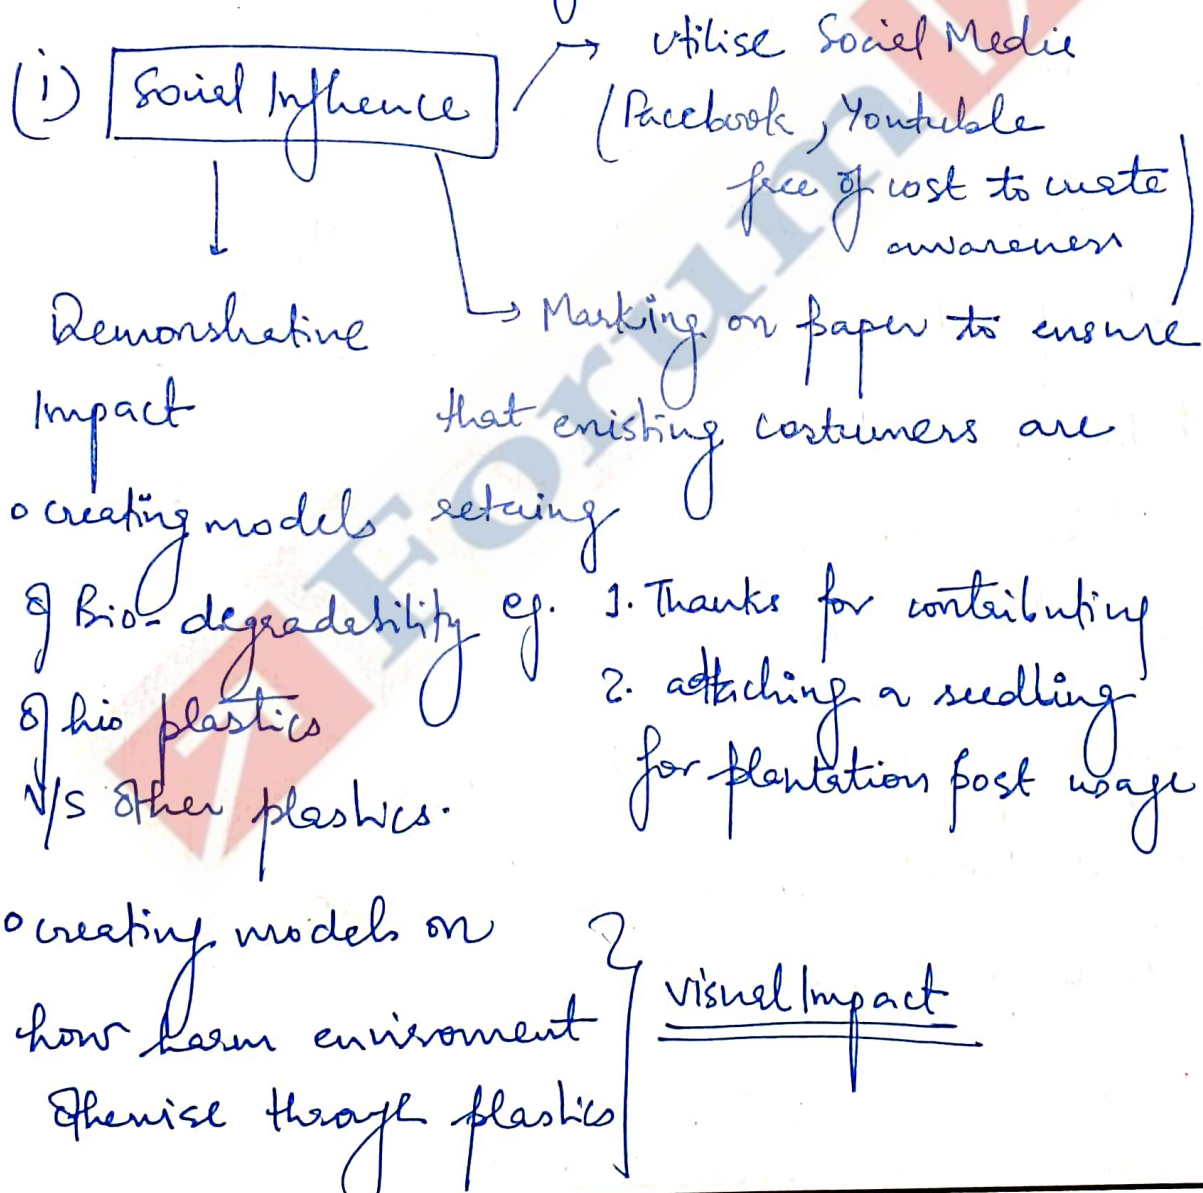 (i) Social Influence
→ utilise Social Media
(Facebook, Youtuble
free of cost to create
awareness)
→ Marking on paper to ensure
that existing costumers are
retaing
eg. 1. Thanks for contributing
2. attaching a seedling
for plantation post usage
Demonstrative
Impact
o creating models
of Bio-degradability
of bio plastics
v/s other plastics.
o creating models on
how harm enviroment
otherwise through plastics
Visual Impact
Forum